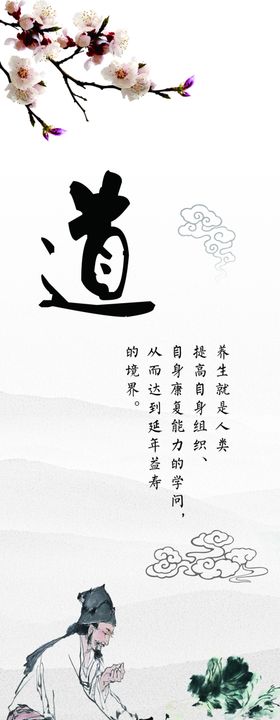 道
养生就是人类
提高自身组织、
自身康复能力的学问，
从而达到延年益寿
的境界。